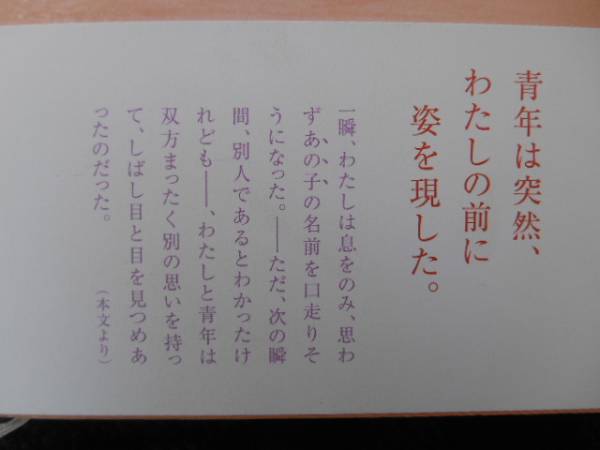 青年は突然、
わたしの前に
姿を現した。
一瞬、わたしは息をのみ、思わ
ずあの子の名前を口走りそ
うになった。――ただ、次の瞬
間、別人であるとわかったけ
れども――、わたしと青年は
双方まったく別の思いを持っ
て、しばし目と目を見つめあ
ったのだった。
(本文より)